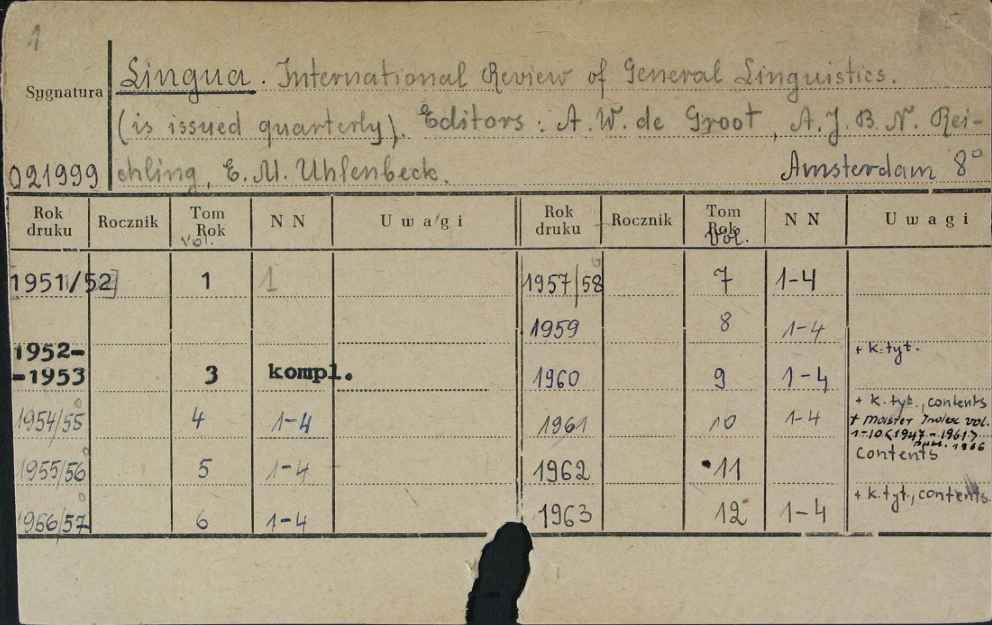 1
Sygnatura
Lingua. International Review of General Linguistics.
(is issued quarterly). Editors: A. W. de Groot, A. J. B. N. Rei-
021999 chling, E. M. Uhlenbeck. Amsterdam 8°
Rok druku Rocznik Tom Rok vol. N N Uwagi Rok druku Rocznik Tom Rok vol. N N Uwagi
1951/52 1 1 1957/58 7 1-4
1959 8 1-4
1952-
-1953 3 kompl. 1960 9 1-4 + k. tyt.
1954/55 4 1-4 1961 10 1-4 + k. tyt., contents
+ master Index vol.
1-10 (1947-1961)
1966
1955/56 5 1-4 1962 11 contents
1966/57 6 1-4 1963 12 1-4 + k. tyt., contents.